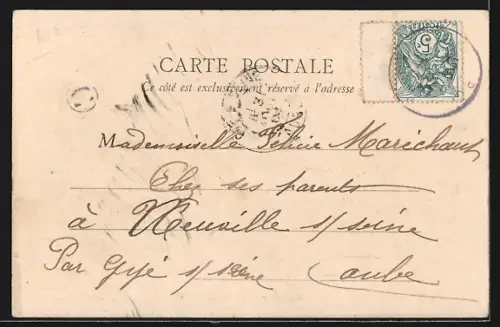 CARTE POSTALE
Ce côté est exclusivement réservé à l'adresse
5
Mademoiselle Maréchaux
Chez ses parents
à Neuville s/ seine
Par Gyé s/ seine Aube